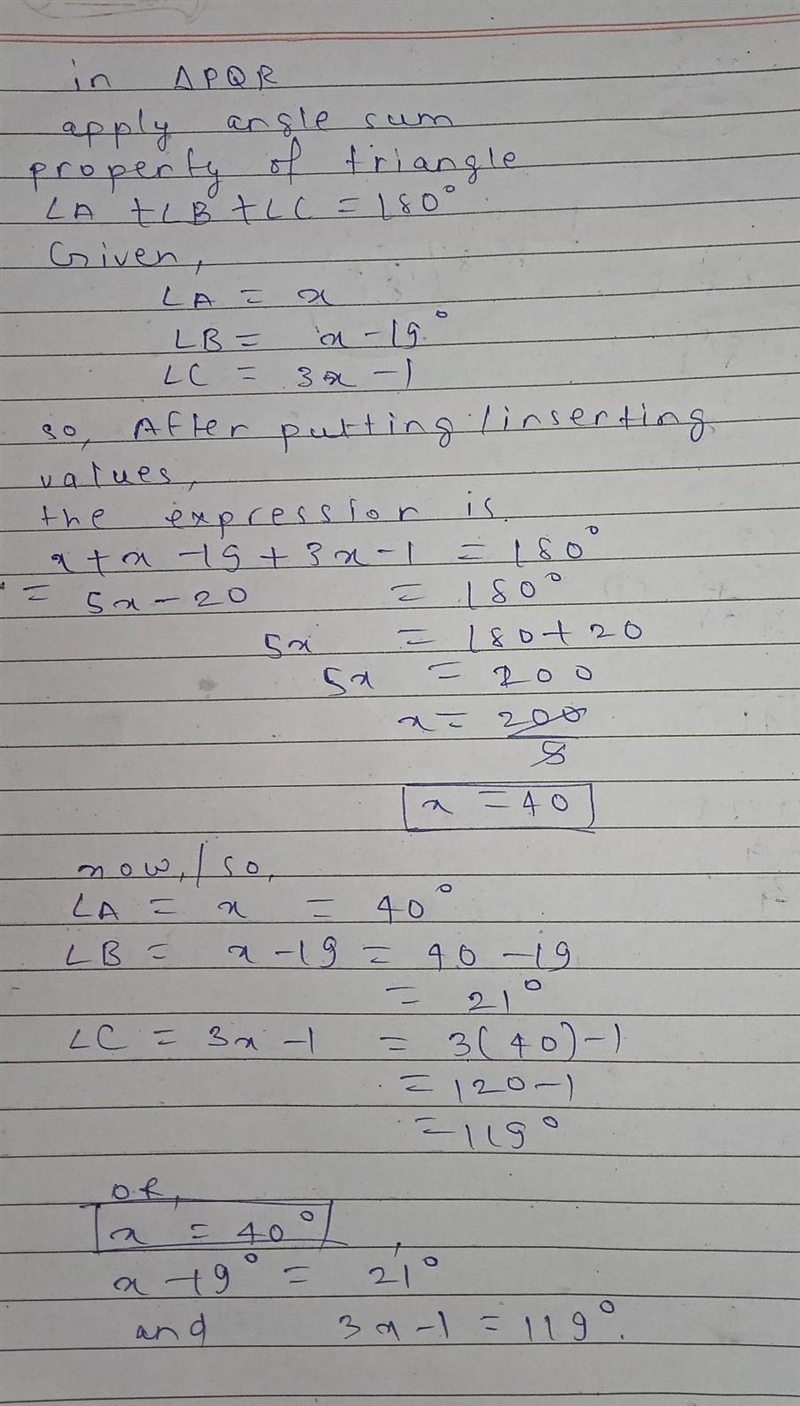 in ΔPQR
apply angle sum
property of triangle
∠A +∠B +∠C = 180°
Given,
∠A = x
∠B = x - 19°
∠C = 3x - 1
so, After putting/inserting
values,
the expression is
x + x - 19 + 3x - 1 = 180°
= 5x - 20 = 180°
5x = 180 + 20
5x = 200
x = 200
5
x = 40
now,/so,
∠A = x = 40°
∠B = x - 19 = 40 - 19
= 21°
∠C = 3x - 1 = 3(40) - 1
= 120 - 1
= 119°
or,
x = 40°,
x - 19° = 21°
and 3x - 1 = 119°.